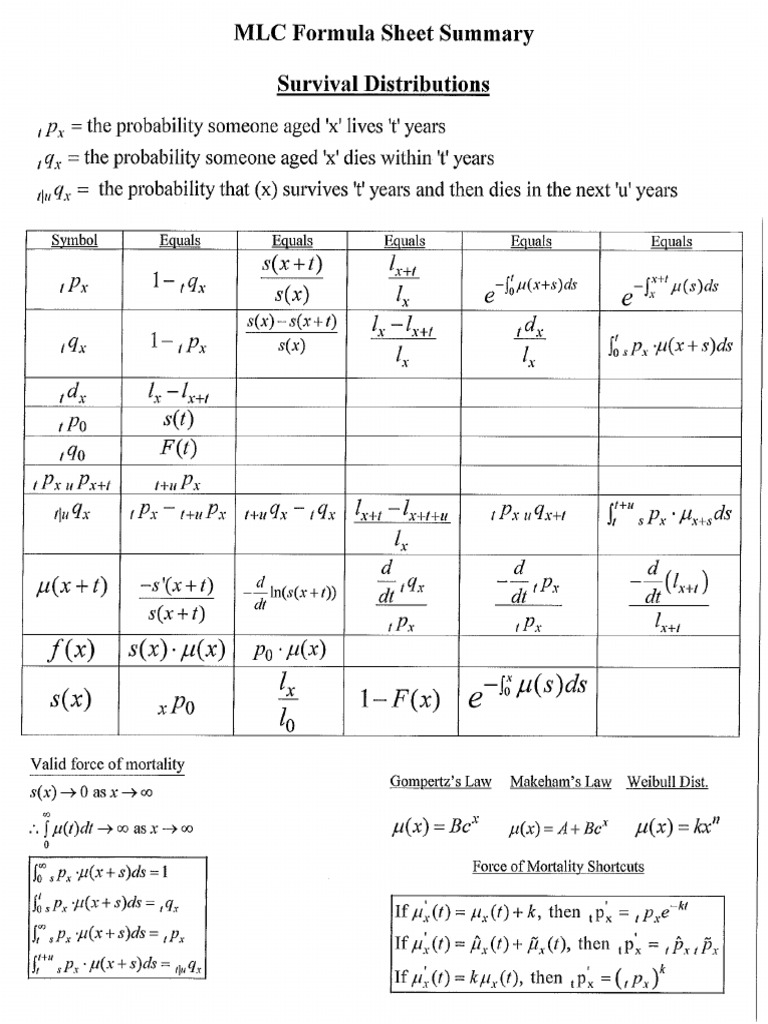 MLC Formula Sheet Summary
Survival Distributions
ₜpₓ = the probability someone aged 'x' lives 't' years
ₜqₓ = the probability someone aged 'x' dies within 't' years
t|u qₓ = the probability that (x) survives 't' years and then dies in the next 'u' years
Symbol | Equals | Equals | Equals | Equals | Equals
ₜpₓ | 1 − ₜqₓ | s(x+t)/s(x) | l_{x+t}/lₓ | e^{−∫₀^t μ(x+s)ds} | e^{−∫ₓ^{x+t} μ(s)ds}
ₜqₓ | 1 − ₜpₓ | s(x)−s(x+t)/s(x) | lₓ − l_{x+t}/lₓ | ₜdₓ/lₓ | ∫₀^t ₛpₓ·μ(x+s)ds
ₜdₓ | lₓ − l_{x+t}
ₜp₀ | s(t)
ₜq₀ | F(t)
ₜpₓ ᵤp_{x+t} | t+u pₓ
t|u qₓ | ₜpₓ − t+u pₓ | t+u qₓ − ₜqₓ | l_{x+t} − l_{x+t+u}/lₓ | ₜpₓ ᵤq_{x+t} | ∫ₜ^{t+u} ₛpₓ·μ_{x+s}ds
μ(x+t) | −s'(x+t)/s(x+t) | −d/dt ln(s(x+t)) | d/dt ₜqₓ/ₜpₓ | −d/dt ₜpₓ/ₜpₓ | −d/dt (l_{x+t})/l_{x+t}
f(x) | s(x)·μ(x) | p₀·μ(x)
s(x) | ₓp₀ | lₓ/l₀ | 1 − F(x) | e^{−∫₀^x μ(s)ds}
Valid force of mortality
s(x) → 0 as x → ∞
∴ ∫₀^∞ μ(t)dt → ∞ as x → ∞
∫₀^∞ ₛpₓ·μ(x+s)ds = 1
∫₀^t ₛpₓ·μ(x+s)ds = ₜqₓ
∫ₜ^∞ ₛpₓ·μ(x+s)ds = ₜpₓ
∫ₜ^{t+u} ₛpₓ·μ(x+s)ds = t|u qₓ
Gompertz's Law Makeham's Law Weibull Dist.
μ(x) = Bcˣ μ(x) = A + Bcˣ μ(x) = kxⁿ
Force of Mortality Shortcuts
If μ'ₓ(t) = μₓ(t) + k, then ₜp'ₓ = ₜpₓe^{−kt}
If μ'ₓ(t) = μ̂ₓ(t) + μ̃ₓ(t), then ₜp'ₓ = ₜp̂ₓ ₜp̃ₓ
If μ'ₓ(t) = kμₓ(t), then ₜp'ₓ = (ₜpₓ)ᵏ